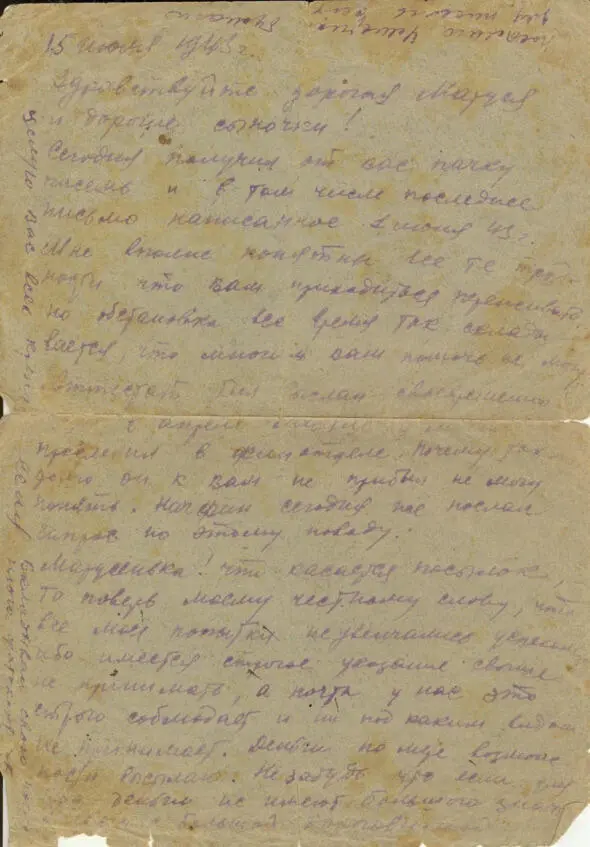 15 июня 1943 г.
Здравствуйте дорогая Маруся
и дорогие сыночки!
Сегодня получил от вас пачку
писем и в том числе последнее
письмо написанное 2 июня 43 г.
Мне вполне понятны все те труд-
ности что вам приходиться переживать
но обстановка все время так склады
вается, что многим вам помочь не могу
Аттестат был выслан своевременно
в апреле
проверил в финотделе. Почему так
долго он к вам не прибыл не могу
понять. Начфин сегодня же послал
запрос по этому поводу.
Марусенька! что касается посылок,
то поверь моему честному слову, что
все мои попытки не увенчались успехом
ибо имеется строгое указание свыше
не принимать, а почта у нас это
строго соблюдает и ни под каким видом
не принимает. Деньги по мере возмож
ности высылаю. Не забудь что если
деньги не имеют большого знач
с большой
целую вас всех крепко